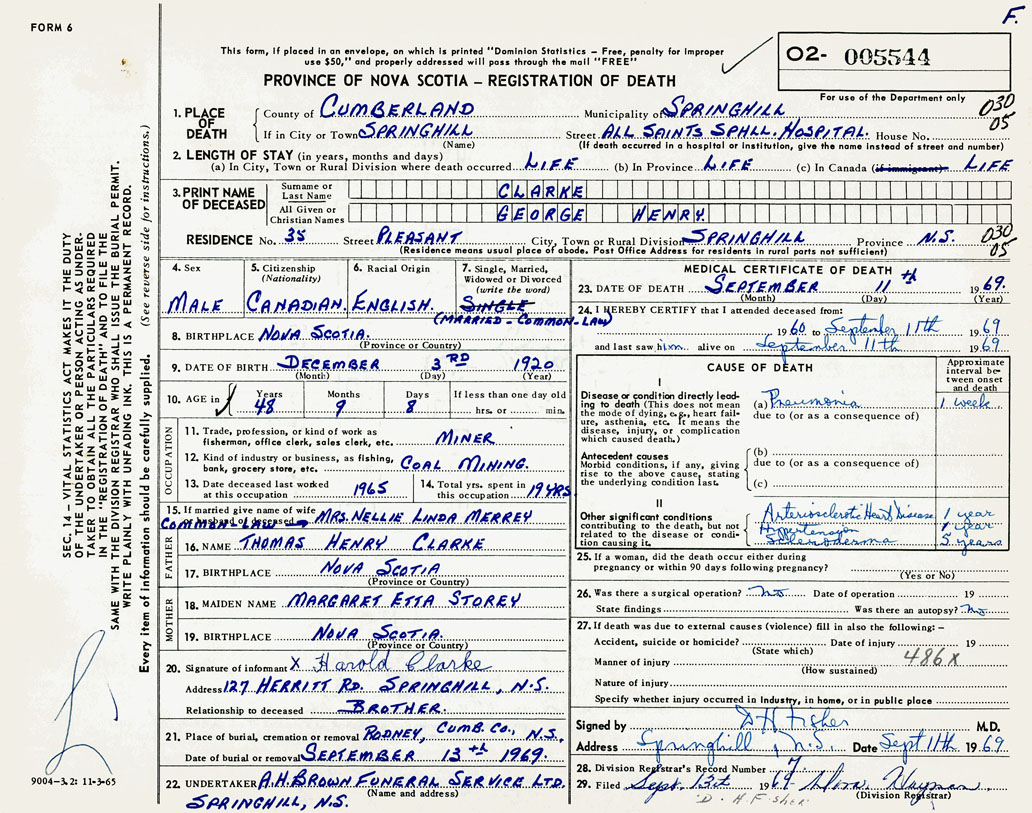 F.
FORM 6
This form, if placed in an envelope, on which is printed "Dominion Statistics – Free, penalty for improper
use $50," and properly addressed will pass through the mail "FREE"
PROVINCE OF NOVA SCOTIA – REGISTRATION OF DEATH
02- 005544
For use of the Department only
030
05
1. PLACE OF DEATH
County of CUMBERLAND Municipality of SPRINGHILL
If in City or Town SPRINGHILL Street ALL SAINTS SPHLL. HOSPITAL. House No.
(Name) (If death occurred in a hospital or institution, give the name instead of street and number)
2. LENGTH OF STAY (in years, months and days)
(a) In City, Town or Rural Division where death occurred LIFE (b) In Province LIFE (c) In Canada (if immigrant) LIFE
3. PRINT NAME OF DECEASED
Surname or Last Name CLARKE
All Given or Christian Names GEORGE HENRY.
RESIDENCE No. 35 Street PLEASANT City, Town or Rural Division SPRINGHILL Province N.S. 030
05
(Residence means usual place of abode. Post Office Address for residents in rural parts not sufficient)
4. Sex
MALE
5. Citizenship
(Nationality)
CANADIAN.
6. Racial Origin
ENGLISH.
7. Single, Married,
Widowed or Divorced
(write the word)
SINGLE
(MARRIED - COMMON-LAW)
8. BIRTHPLACE NOVA SCOTIA.
(Province or Country)
9. DATE OF BIRTH DECEMBER 3RD 1920
(Month) (Day) (Year)
10. AGE in Years Months Days If less than one day old
48 9 8 hrs. or min.
OCCUPATION
11. Trade, profession, or kind of work as
fisherman, office clerk, sales clerk, etc. MINER
12. Kind of industry or business, as fishing,
bank, grocery store, etc. COAL MINING.
13. Date deceased last worked
at this occupation 1965
14. Total yrs. spent in
this occupation 19 YRS
15. If married give name of wife
or husband of deceased MRS. NELLIE LINDA MERREY
COMMON-LAW
FATHER
16. NAME THOMAS HENRY CLARKE
17. BIRTHPLACE NOVA SCOTIA
(Province or Country)
MOTHER
18. MAIDEN NAME MARGARET ETTA STOREY
19. BIRTHPLACE NOVA SCOTIA.
(Province or Country)
20. Signature of informant X Harold Clarke
Address 127 HERRITT RD. SPRINGHILL, N.S.
Relationship to deceased BROTHER.
21. Place of burial, cremation or removal RODNEY, CUMB. CO., N.S.
Date of burial or removal SEPTEMBER 13th 1969.
22. UNDERTAKER A.H. BROWN FUNERAL SERVICE LTD.
(Name and address)
SPRINGHILL, N.S.
MEDICAL CERTIFICATE OF DEATH
23. DATE OF DEATH SEPTEMBER 11th 1969.
(Month) (Day) (Year)
24. I HEREBY CERTIFY that I attended deceased from:
1960 to September 11th 1969
and last saw him alive on September 11th 1969
CAUSE OF DEATH
Approximate interval between onset and death
I
Disease or condition directly leading to death (This does not
mean the mode of dying, e.g., heart failure, asthenia, etc. It means the
disease, injury, or complication
which caused death.)
(a) Pneumonia 1 week.
due to (or as a consequence of)
Antecedent causes
Morbid conditions, if any, giving
rise to the above cause, stating
the underlying condition last.
(b)
due to (or as a consequence of)
(c)
II
Other significant conditions
contributing to the death, but not
related to the disease or condition causing it.
Arteriosclerotic Heart Disease 1 year
Hypertension 1 year
Scleroderma 5 years
25. If a woman, did the death occur either during
pregnancy or within 90 days following pregnancy?
(Yes or No)
26. Was there a surgical operation? no Date of operation 19
State findings Was there an autopsy? no
27. If death was due to external causes (violence) fill in also the following: –
Accident, suicide or homicide? Date of injury 19
(State which)
486X
Manner of injury
(How sustained)
Nature of injury
Specify whether injury occurred in Industry, in home, or in public place
Signed by D H Fisher M.D.
Address Springhill, N.S. Date Sept 11th 1969
28. Division Registrar's Record Number 7
29. Filed Sept. 13th 1969
(Division Registrar)
D. H. Fisher
SEC. 14 – VITAL STATISTICS ACT MAKES IT THE DUTY
OF THE UNDERTAKER OR PERSON ACTING AS UNDER-
TAKER TO OBTAIN ALL THE PARTICULARS REQUIRED
IN THE "REGISTRATION OF DEATH" AND TO FILE THE
SAME WITH THE DIVISION REGISTRAR WHO SHALL ISSUE THE BURIAL PERMIT.
WRITE PLAINLY WITH UNFADING INK. THIS IS A PERMANENT RECORD.
Every item of information should be carefully supplied. (See reverse side for instructions.)
9004–3.2: 11-3-65